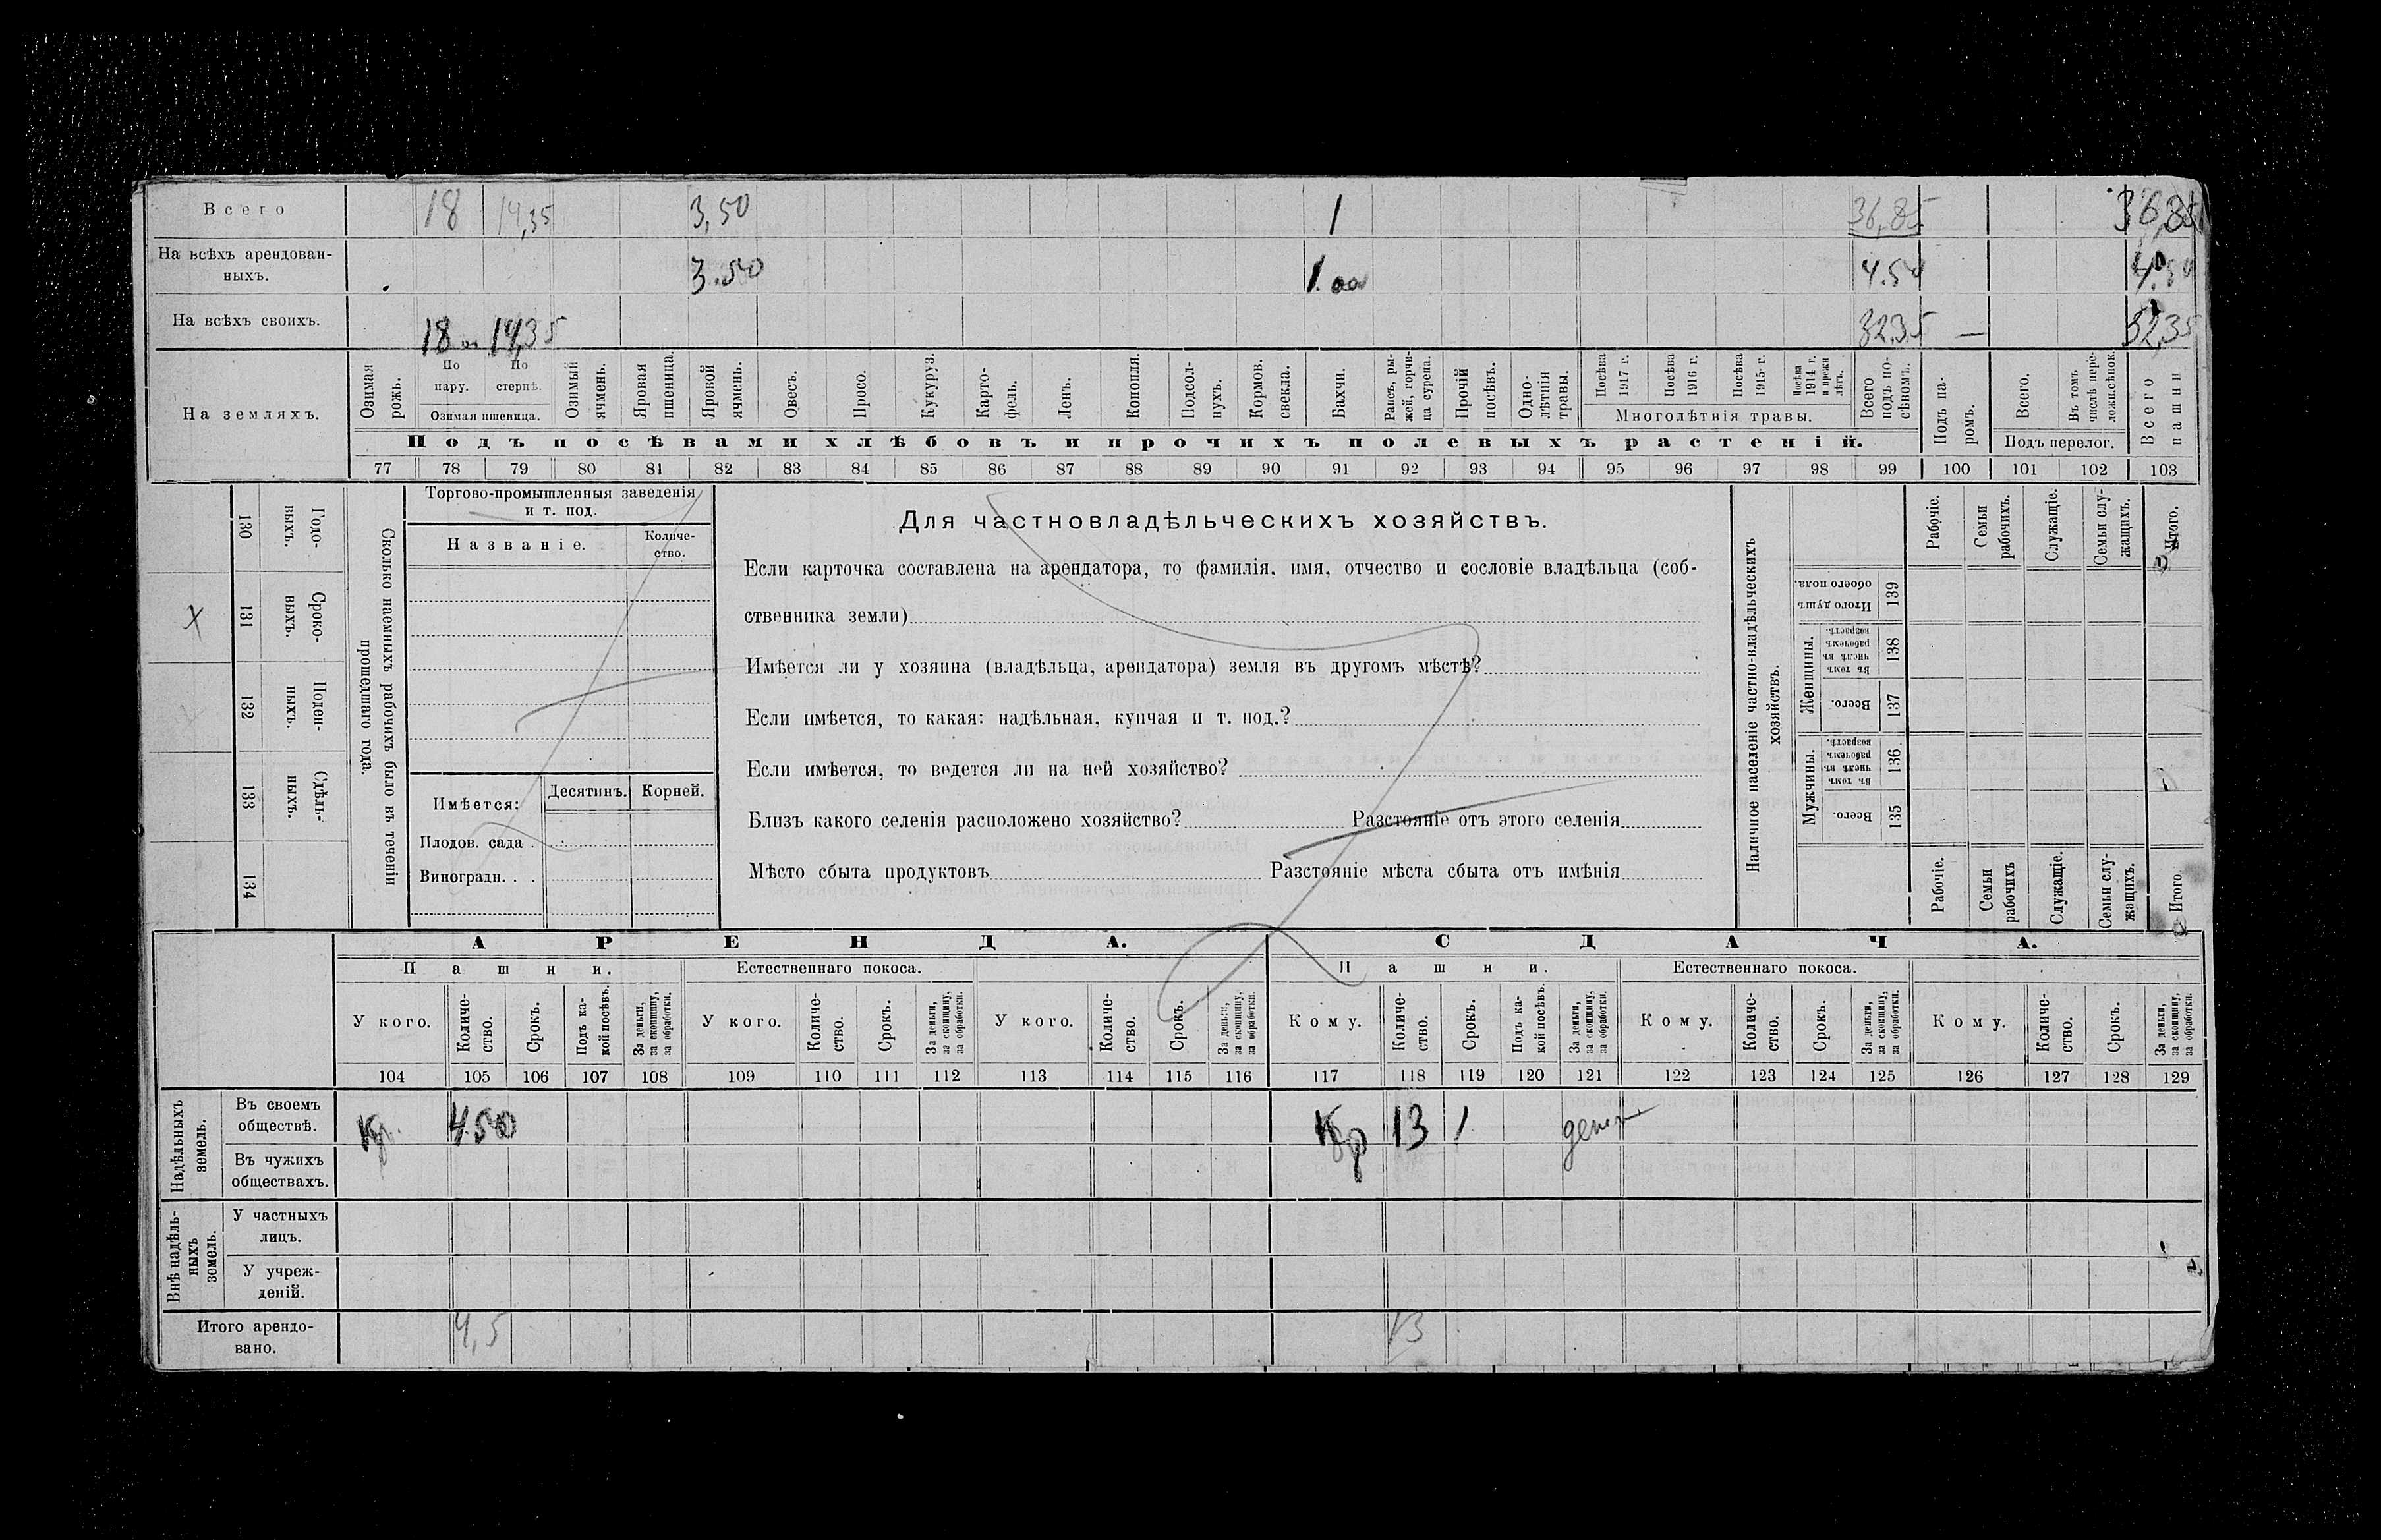 Всего 18 14,35 3,50 1 36,85 36,85
На всѣхъ арендован-
ныхъ. 3.50 1.00 4.50 4.50
На всѣхъ своихъ. 18 14,35 32,35 — 32,35
На земляхъ.
Озимая рожь.
По пару.
По стернѣ.
Озимая пшеница.
Озимый ячмень.
Яровая пшеница.
Яровой ячмень.
Овесъ.
Просо.
Кукуруз.
Карто-
фель.
Ленъ.
Конопля.
Подсол-
нухъ.
Кормов. свекла.
Бахчи.
Рапсъ, ры-
жей, горчи-
ца сурепа.
Прочій посѣвъ.
Одно-
лѣтнія травы.
Посѣва 1917 г.
Посѣва 1916 г.
Посѣва 1915 г.
Посѣва 1914 г. и прежн лѣтъ.
Многолѣтнія травы.
Всего подъ по-
сѣвомъ.
Подъ па-
ромъ.
Всего.
Въ томъ числѣ пере-
ложн.сѣнок.
Подъ перелог.
Всего пашни
Подъ посѣвами хлѣбовъ и прочихъ полевыхъ растеній.
77 78 79 80 81 82 83 84 85 86 87 88 89 90 91 92 93 94 95 96 97 98 99 100 101 102 103
130 Годо-
выхъ.
X 131 Сроко-
выхъ.
132 Поден-
ныхъ.
133 Сдѣль-
ныхъ.
134
Сколько наемныхъ рабочихъ было въ теченіи
прошедшаго года.
Торгово-промышленныя заведенія
и т. под.
Названіе. Количе-
ство.
Имѣется: Десятинъ. Корней.
Плодов. сада .
Виноградн. . .
Для частновладѣльческихъ хозяйствъ.
Если карточка составлена на арендатора, то фамилія, имя, отчество и сословіе владѣльца (соб-
ственника земли)
Имѣется ли у хозяина (владѣльца, арендатора) земля въ другомъ мѣстѣ?
Если имѣется, то какая: надѣльная, купчая и т. под.?
Если имѣется, то ведется ли на ней хозяйство?
Близъ какого селенія расположено хозяйство? Разстояніе отъ этого селенія
Мѣсто сбыта продуктовъ Разстояніе мѣста сбыта отъ имѣнія
Наличное населеніе частно-владѣльческихъ
хозяйствъ.
Рабочіе. Семьи рабочихъ. Служащіе. Семьи слу-
жащихъ. Итого.
Итого душъ обоего пола. 139
Женщины. Въ томъ числѣ въ рабочемъ возрастѣ. 138
Всего. 137
Мужчины. Въ томъ числѣ въ рабочемъ возрастѣ. 136
Всего. 135
Рабочіе. Семьи рабочихъ Служащіе. Семьи слу-
жащихъ. Итого
АРЕНДА. СДАЧА.
Пашни. Естественнаго покоса. Пашни. Естественнаго покоса.
У кого. Количе-
ство. Срокъ. Подъ ка-
кой посѣвъ. За деньги, за скопщину, за обработки.
У кого. Количе-
ство. Срокъ. За деньги, за скопщину, за обработки.
У кого. Количе-
ство. Срокъ. За деньги, за скопщину, за обработки.
Кому. Количе-
ство. Срокъ. Подъ ка-
кой посѣвъ. За деньги, за скопщину, за обработки.
Кому. Количе-
ство. Срокъ. За деньги, за скопщину, за обработки.
Кому. Количе-
ство. Срокъ. За деньги, за скопщину, за обработки.
104 105 106 107 108 109 110 111 112 113 114 115 116 117 118 119 120 121 122 123 124 125 126 127 128 129
Надѣльныхъ земель.
Въ своемъ
обществѣ. Кр. 4.50 Кр 13 1
Въ чужихъ
обществахъ.
Внѣ надѣль-
ныхъ земель.
У частныхъ
лицъ.
У учреж-
деній.
Итого арендо-
вано. 4,5 13